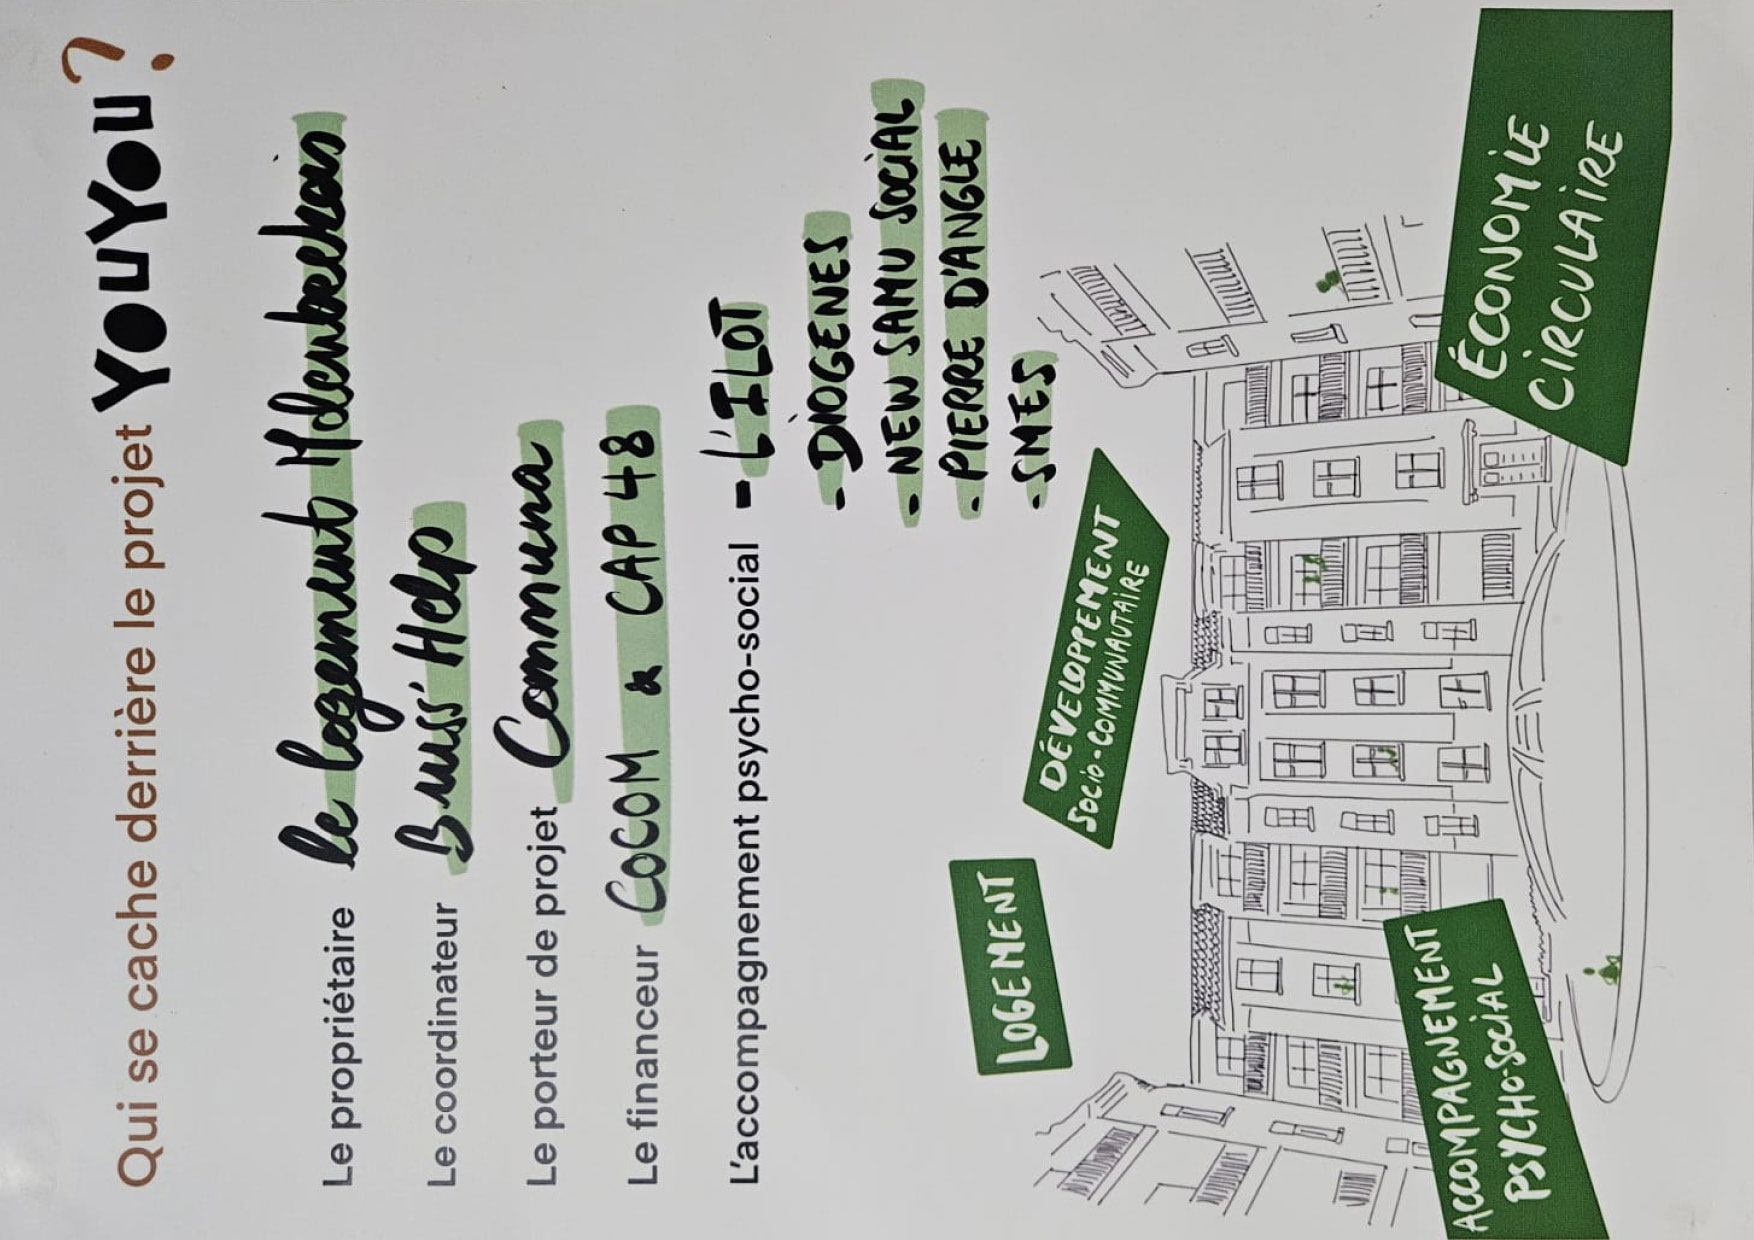 Qui se cache derrière le projet YouYou ?
Le propriétaire le logement Molenbeekois
Le coordinateur Bruss'Help
Le porteur de projet Communa
Le financeur COCOM & CAP 48
L'accompagnement psycho-social - L'ILOT
- DIOGENES
- NEW SAMU SOCIAL
- PIERRE D'ANGLE
- SMES
LOGEMENT
DÉVELOPPEMENT
SOCIO-COMMUNAUTAIRE
ACCOMPAGNEMENT
PSYCHO-SOCIAL
ÉCONOMIE
CIRCULAIRE